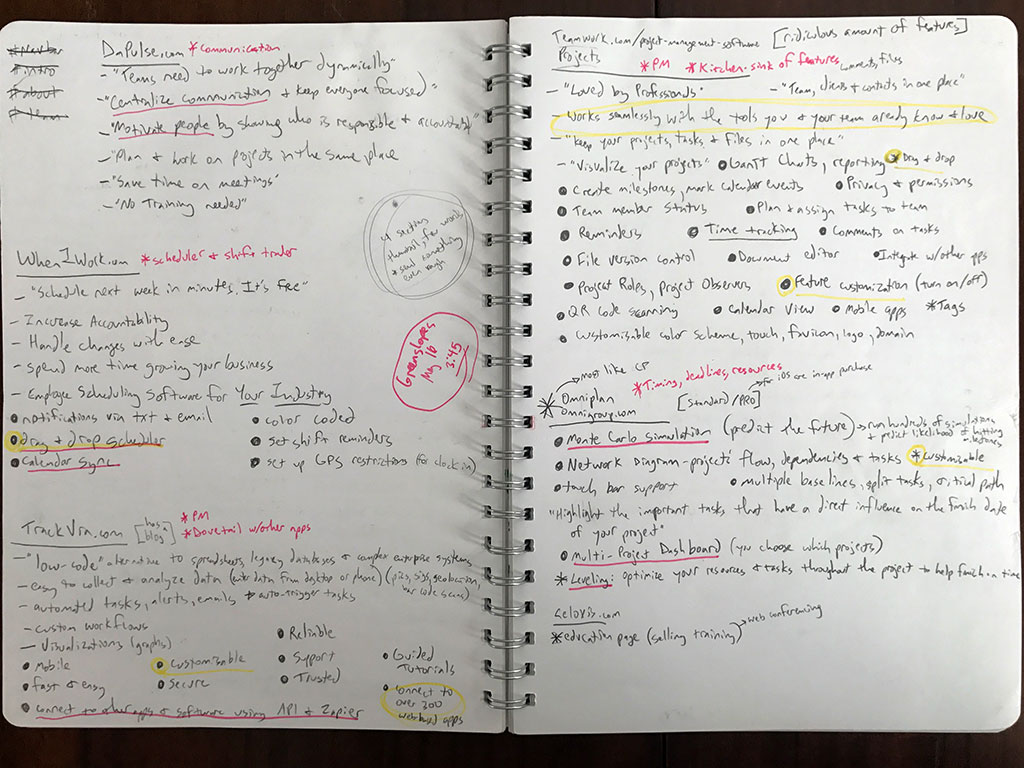 *Navbar
*intro
*about
*team
DaPulse.com *Communication
- "Teams need to work together dynamically"
- "Centralize communication & keep everyone focused"
- "Motivate people by showing who is responsible & accountable"
- "Plan & work on projects in the same place
- "Save time on meetings"
- "No Training needed"
4 section
thumbnails, few words
* send something
even rough
WhenIWork.com *scheduler & shift trader
- "Schedule next week in minutes. It's Free"
- Increase Accountability
- Handle changes with ease
- Spend more time growing your business
- Employee Scheduling Software for Your Industry
• notifications via txt & email • color coded
• drag & drop scheduler • set shift reminders
• Calendar Sync • set up GPS restrictions (for clock in)
Greenslopes
May 16
3:45
TrackVia.com [has blog] *PM
*Dovetail w/other apps
- "low-code" alternative to spreadsheets, legacy databases & complex enterprise systems
- easy to collect & analyze data (enter data from desktop or phone) (pics, sigs, geolocation,
bar code scans)
- automated tasks, alerts, emails auto-trigger tasks
- custom workflows
- Visualizations (graphs) • Reliable
• Mobile • Customizable • Support • Guided Tutorials
• fast & easy • Secure • Trusted • Connect to
over 200
web based apps
• Connect to other apps & software using API & Zapier
Teamwork.com/project-management-software [ridiculous amount of features]
Projects *PM *Kitchen-sink of features comments, files
- "Loved by Professionals" - "Team, clients & contacts in one place"
- Works seamlessly with the tools you & your team already know & love
- "Keep your projects, tasks & files in one place"
- "Visualize your projects" • Gantt Charts, reporting *Drag & drop
• Create milestones, mark calendar events • Privacy & permissions
• Team member Status • Plan & assign tasks to team
• Reminders • Time tracking • Comments on tasks
• File version control • Document editor • Integrate w/other apps
• Project Roles, project Observers • Feature customization (turn on/off)
• QR Code scanning • Calendar View • Mobile apps *Tags
• Customizable color scheme, touch, favicon, logo, domain
→ most like CP
*Timing, deadlines, resources
* Omniplan [Standard/PRO] → for iOS are in-app purchase
Omnigroup.com
• Monte Carlo Simulation (predict the future) → run hundreds of simulations
& predict likelihood of hitting
• Network Diagram - projects' flow, dependencies & tasks *customizable
• touch bar support • multiple baselines, split tasks, critical path
"Highlight the important tasks that have a direct influence on the finish date
of your project"
• Multi-Project Dashboard (you choose which projects)
*Leveling: optimize your resources & tasks throughout the project to help finish on time
Selovis.com
*education page (selling training) → web conferencing